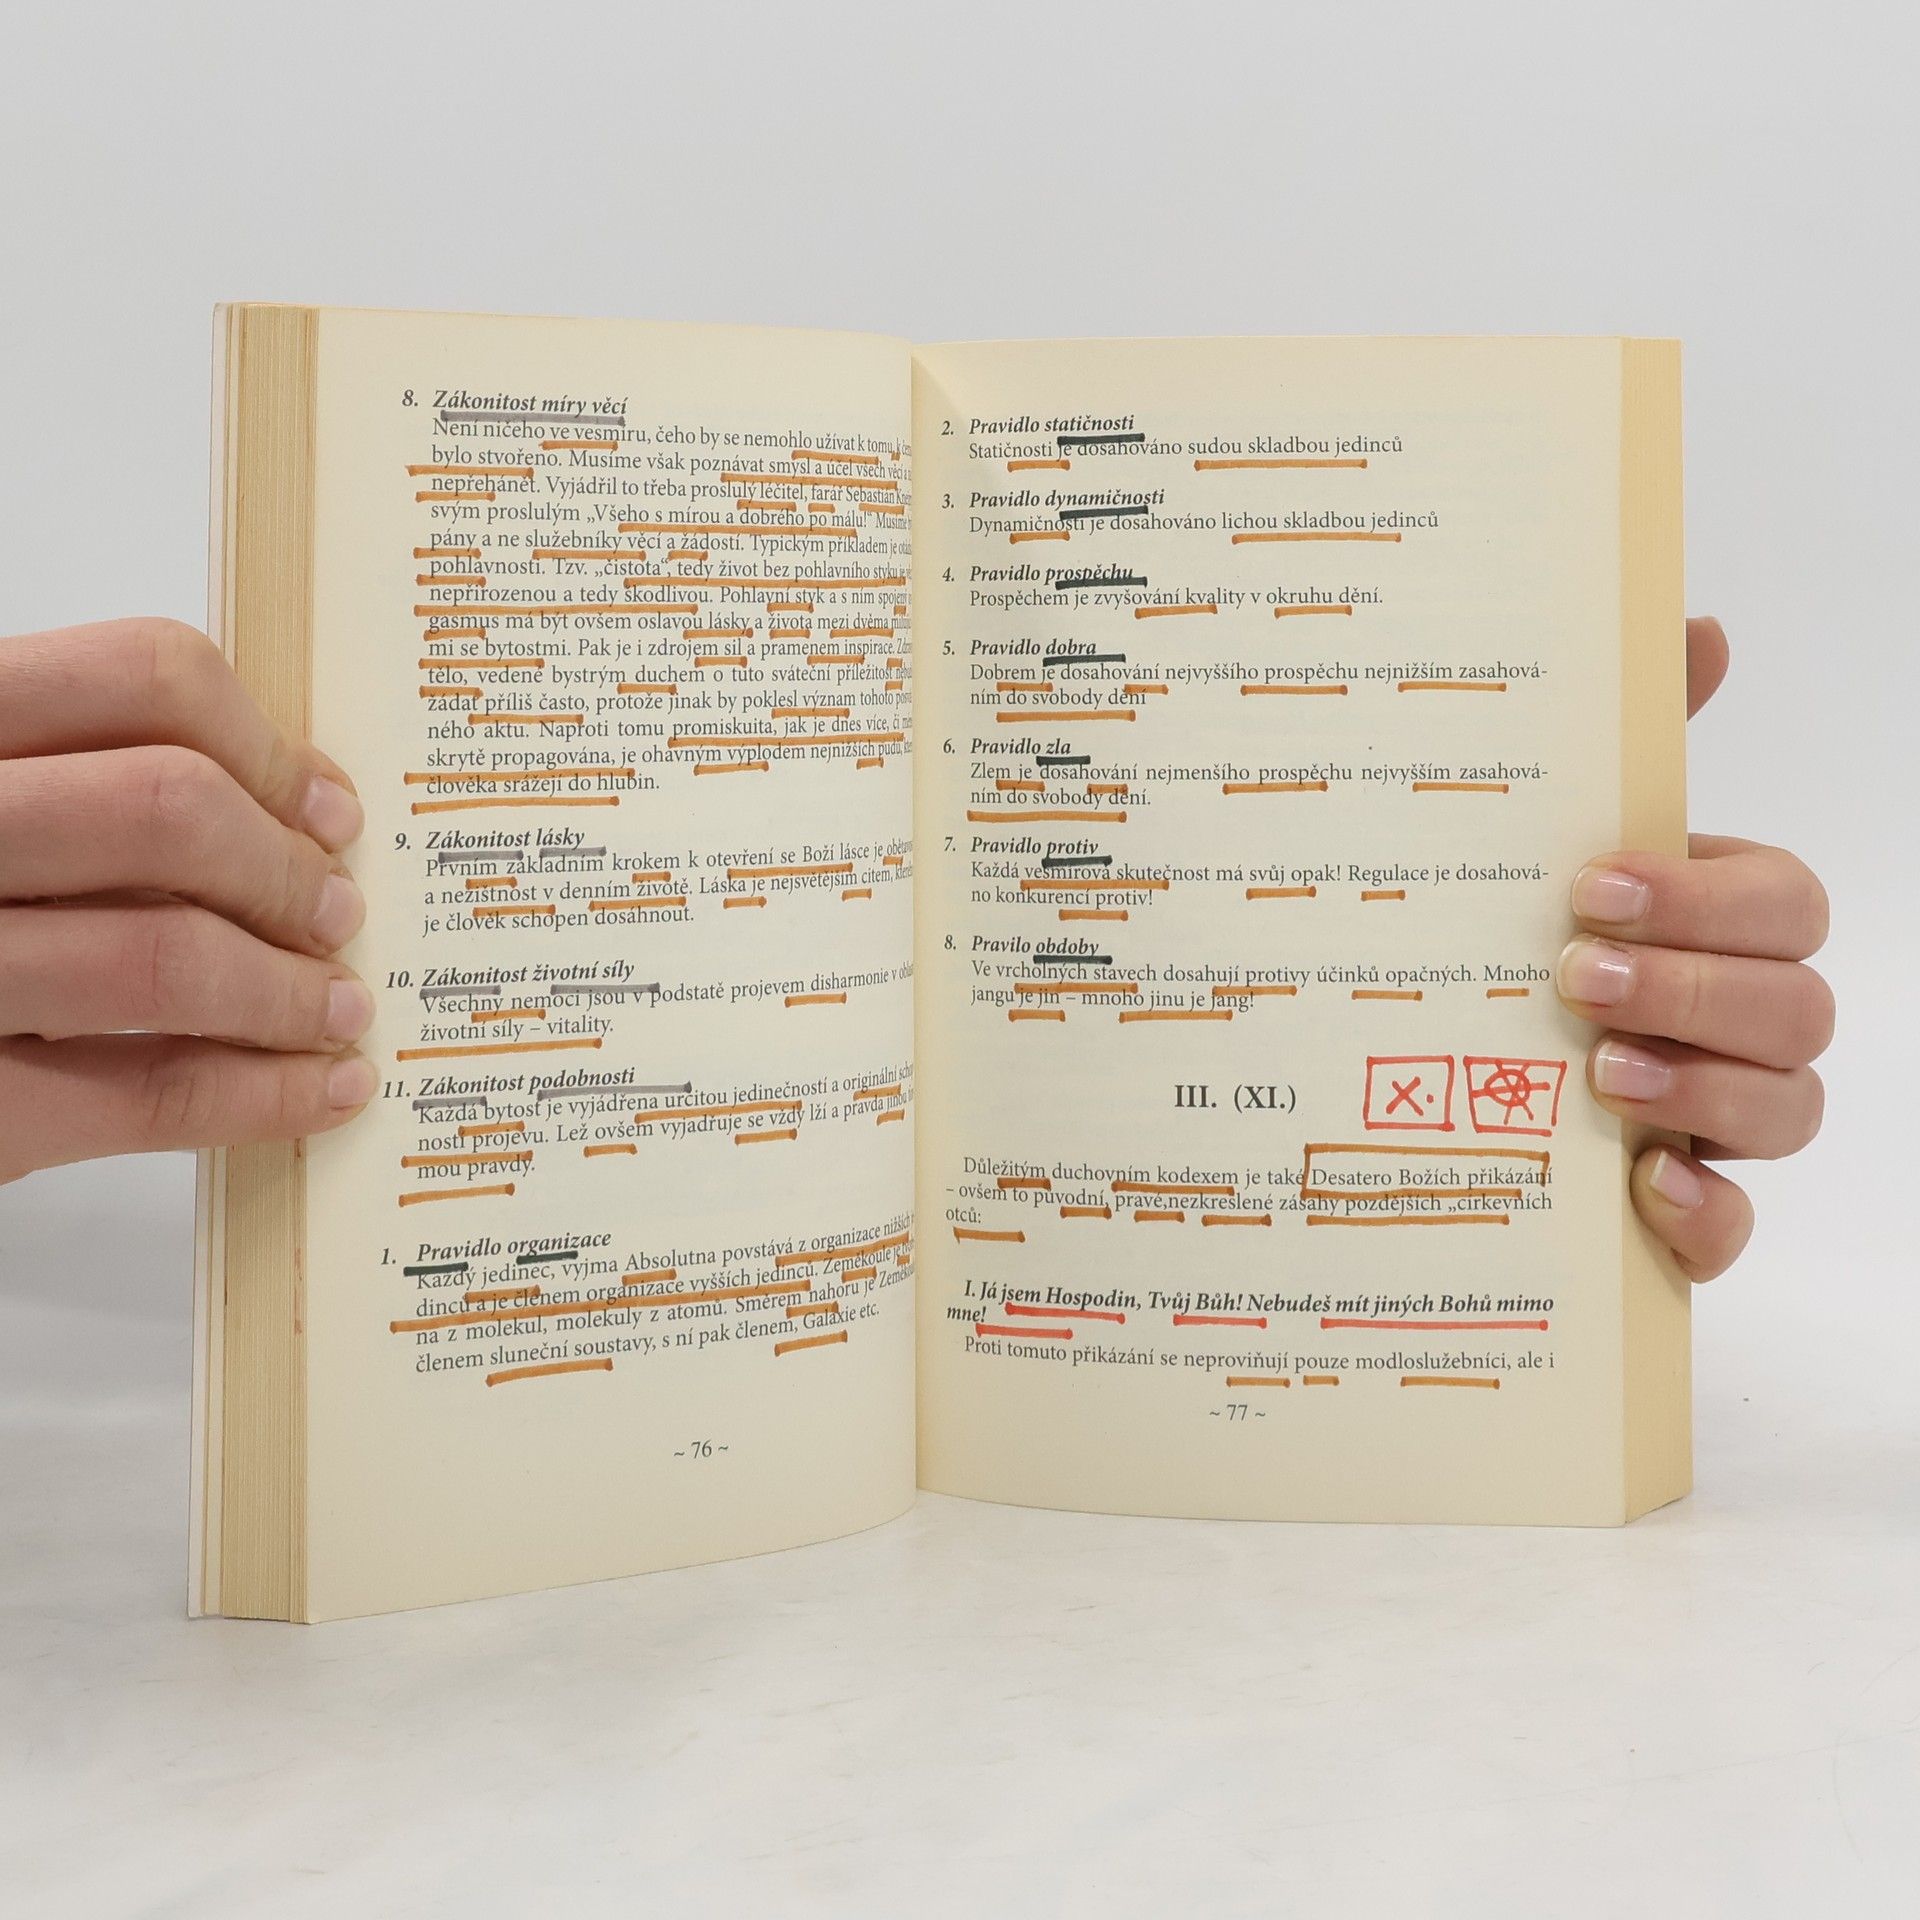 8. Zákonitost míry věcí
Není ničeho ve vesmíru, čeho by se nemohlo užívat k tomu, k
bylo stvořeno. Musíme však poznávat smysl a účel všech věcí a
nepřehánět. Vyjádřil to třeba proslulý léčitel, farář Sebastián
svým proslulým „Všeho s mírou a dobrého po málu!“
pány a ne služebníky věcí a žádostí. Typickým příkladem je
pohlavnosti. Tzv. „čistota“, tedy život bez pohlavního styku je
nepřirozenou a tedy škodlivou. Pohlavní styk a s ním
gasmus má být ovšem oslavou lásky a života mezi dvěma
mi se bytostmi. Pak je i zdrojem sil a pramenem inspirace.
tělo, vedené bystrým duchem o tuto sváteční příležitost
žádat příliš často, protože jinak by poklesl význam tohoto
ného aktu. Naproti tomu promiskuita, jak je dnes více, či
skrytě propagována, je ohavným výplodem nejnižších pudů,
člověka srážejí do hlubin.
9. Zákonitost lásky
Prvním základním krokem k otevření se Boží lásce je
a nezištnost v denním životě. Láska je nejsvětějším citem,
je člověk schopen dosáhnout.
10. Zákonitost životní síly
Všechny nemoci jsou v podstatě projevem disharmonie v
životní síly – vitality.
11. Zákonitost podobnosti
Každá bytost je vyjádřena určitou jedinečností a originální
ností projevu. Lež ovšem vyjadřuje se vždy lží a pravda
mou pravdy.
1. Pravidlo organizace
Každý jedinec, vyjma Absolutna povstává z organizace nižších
dinců a je členem organizace vyšších jedinců. Zeměkoule je
na z molekul, molekuly z atomů. Směrem nahoru je
členem sluneční soustavy, s ní pak členem, Galaxie etc.
~ 76 ~
2. Pravidlo statičnosti
Statičnosti je dosahováno sudou skladbou jedinců
3. Pravidlo dynamičnosti
Dynamičnosti je dosahováno lichou skladbou jedinců
4. Pravidlo prospěchu
Prospěchem je zvyšování kvality v okruhu dění.
5. Pravidlo dobra
Dobrem je dosahování nejvyššího prospěchu nejnižším zasahová-
ním do svobody dění
6. Pravidlo zla
Zlem je dosahování nejmenšího prospěchu nejvyšším zasahová-
ním do svobody dění.
7. Pravidlo protiv
Každá vesmírová skutečnost má svůj opak! Regulace je dosahová-
no konkurencí protiv!
8. Pravilo obdoby
Ve vrcholných stavech dosahují protivy účinků opačných. Mnoho
jangu je jin – mnoho jinu je jang!
III. (XI.)
X.
Důležitým duchovním kodexem je také Desatero Božích přikázání
– ovšem to původní, pravé,nezkreslené zásahy pozdějších „církevních
otců:
I. Já jsem Hospodin, Tvůj Bůh! Nebudeš mít jiných Bohů mimo
mne!
Proti tomuto přikázání se neproviňují pouze modloslužebníci, ale i
~ 77 ~